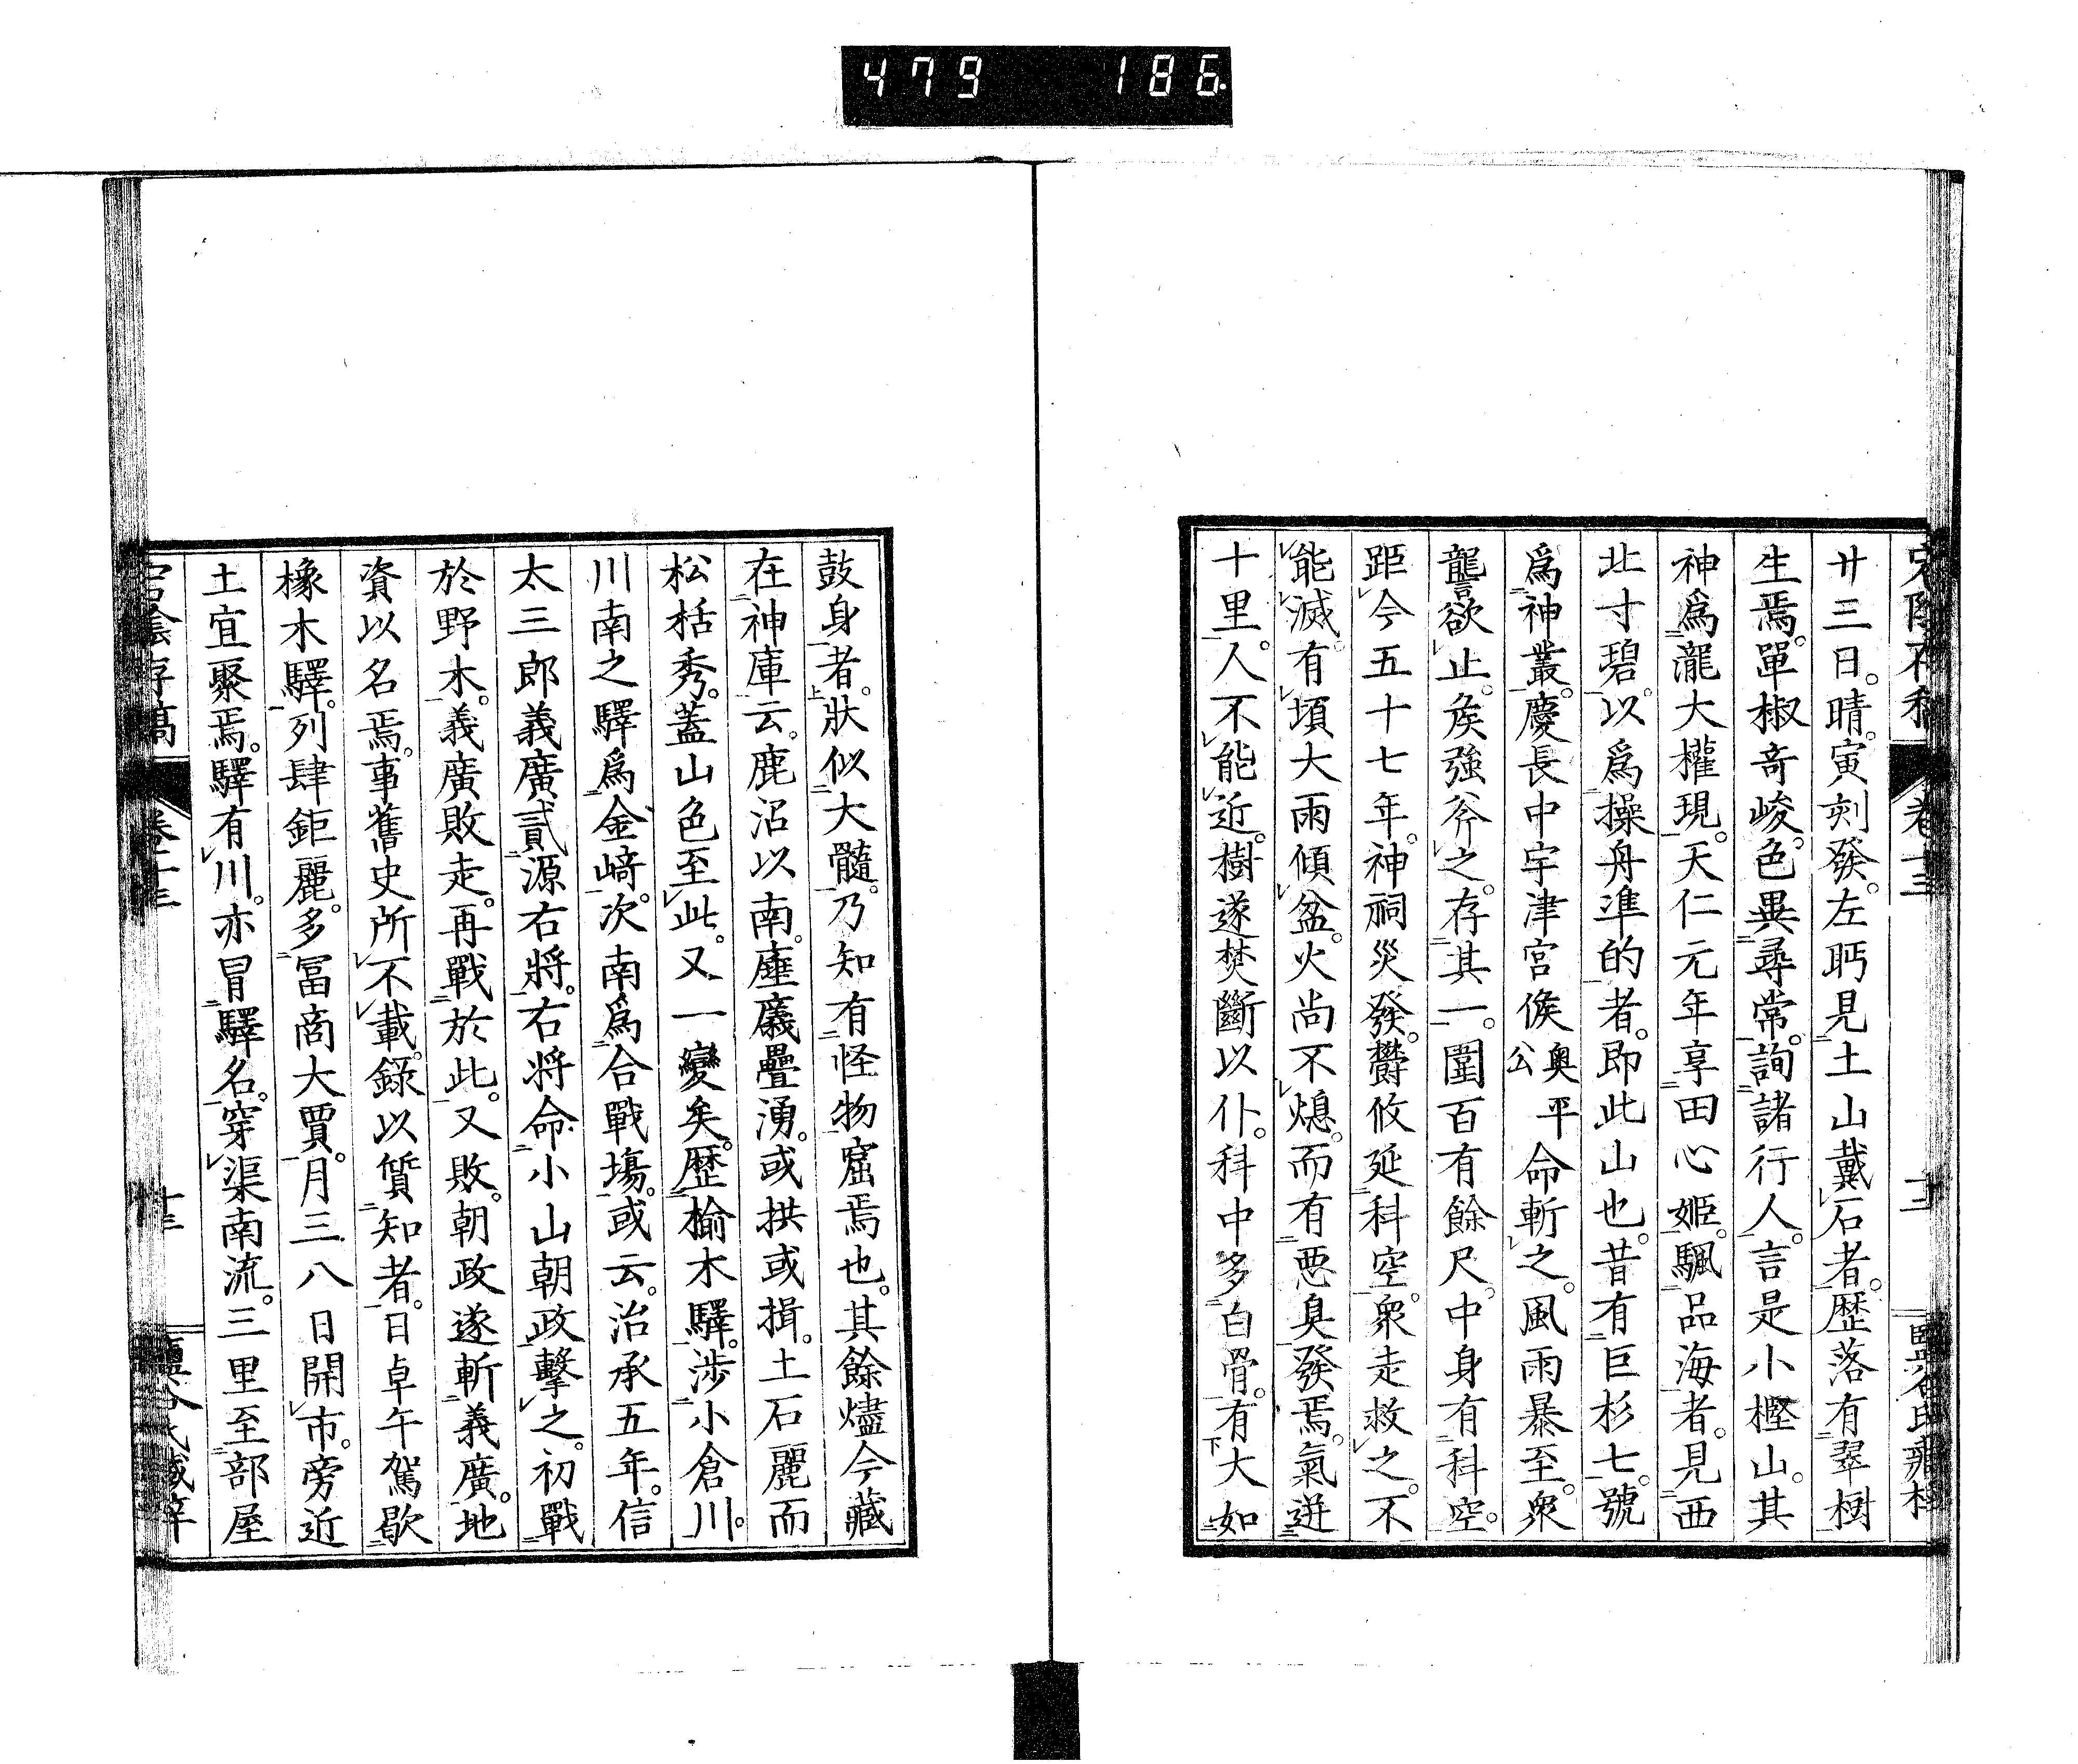 479 186
卷十三
廿三日。晴。寅刻發。左眄見土山戴石者。歷落有翠樹
生焉。單椒奇峻。色異尋常。詢諸行人。言是小樫山。其
神爲瀧大權現。天仁元年享田心姬。颿品海者。見西
北寸碧。以爲操舟準的者。即此山也。昔有巨杉七。號
爲神叢。慶長中宇津宮侯奧平公命斬之。風雨暴至。衆
讋欲止。矦強斧之。存其一。圍百有餘尺。中身有科空。
距今五十七年。神祠災發。欝攸延科空。衆走救之。不
能滅。有頃大雨傾盆。火尚不熄。而有惡臭發焉。氣逬
十里。人不能近。樹遂焚斷以仆。科中多白骨。有大如
鼓身者。狀似大髓。乃知有怪物窟焉也。其餘燼今藏
在神庫云。鹿沼以南。㕓㕒疊湧。或拱或揖。土石麗而
松栝秀。蓋山色至此。又一變矣。歷楡木驛。涉小倉川。
川南之驛爲金﨑。次南爲合戰塲。或云。治承五年。信
太三郎義廣貳源右將。右將命小山朝政擊之。初戰
於野木。義廣敗走。再戰於此。又敗。朝政遂斬義廣。地
資以名焉。事舊史所不載。錄以質知者。日卓午駕歇
橡木驛。列肆鉅麗。多冨商大賈。月三八日開市。旁近
土宜聚焉。驛有川。亦冒驛名。穿渠南流。三里至部屋
宕陰存稿
卷十三